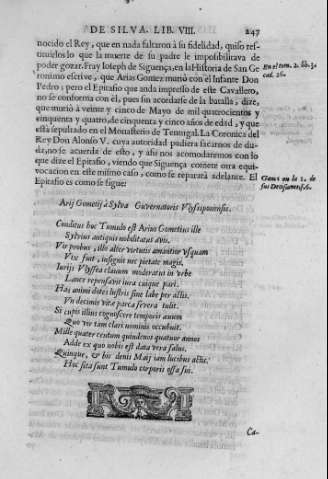 DE SILVA. LIB. VIII. 247
nocido el Rey, que en nada faltaron à su fidelidad, quiso res-
tituirlos lo que la muerte de su padre le impossibilitava de
poder gozar. Fray Ioseph de Siguença, en la Historia de San Ge-
ronimo escrive, que Arias Gomez murió con el Infante Don
Pedro; pero el Epitafio que anda impresso de este Cavallero,
no se conforma con èl, pues sin acordarse de la batalla, dize,
que murió à veinte y cinco de Mayo de mil quatrocientos y
cinquenta y quatro, de cinquenta y cinco años de edad, y que
está sepultado en el Monasterio de Tentugal. La Coronica del
Rey Don Alonso V. cuya autoridad pudiera sacarnos de du-
da, no se acuerda de esto, y assi nos acomodaremos con lo
que dize el Epitafio, viendo que Siguença comete otra equi-
vocacion en este mismo caso, como se reparará adelante. El
Epitafio es como se sigue:
En el tom. 2. lib. 3.
cap. 26.
Goes en la 1. de
sus Decis
Arij Gometij à Sylva Guvernatoris Vlyssiponensis.
Conditus hoc Tumulo est Arius Gometius ille
Sylvius antiquis nobilitatus avis.
Vir probus, ille alter virtutis amantior vsquam
Vix fuit, insignis nec pietate magis.
Iurijs Vlyssea clauum moderatus in vrbe
Lance reprensavit iura cuique pari.
Has animi dotes lustris sine labe per
Vn decimis vita parca severa tulit.
Si cupis illius cognoscere temporis auum
Quo vir tam clari nominis occubuit.
Mille quater centum quindenos quatuor annos
Adde ex quo nobis est data vera salus.
Quinque, & bis denis Maij iam lucibus actis
Hoc sita sunt Tumulo corporis ossa sui.
Ca-